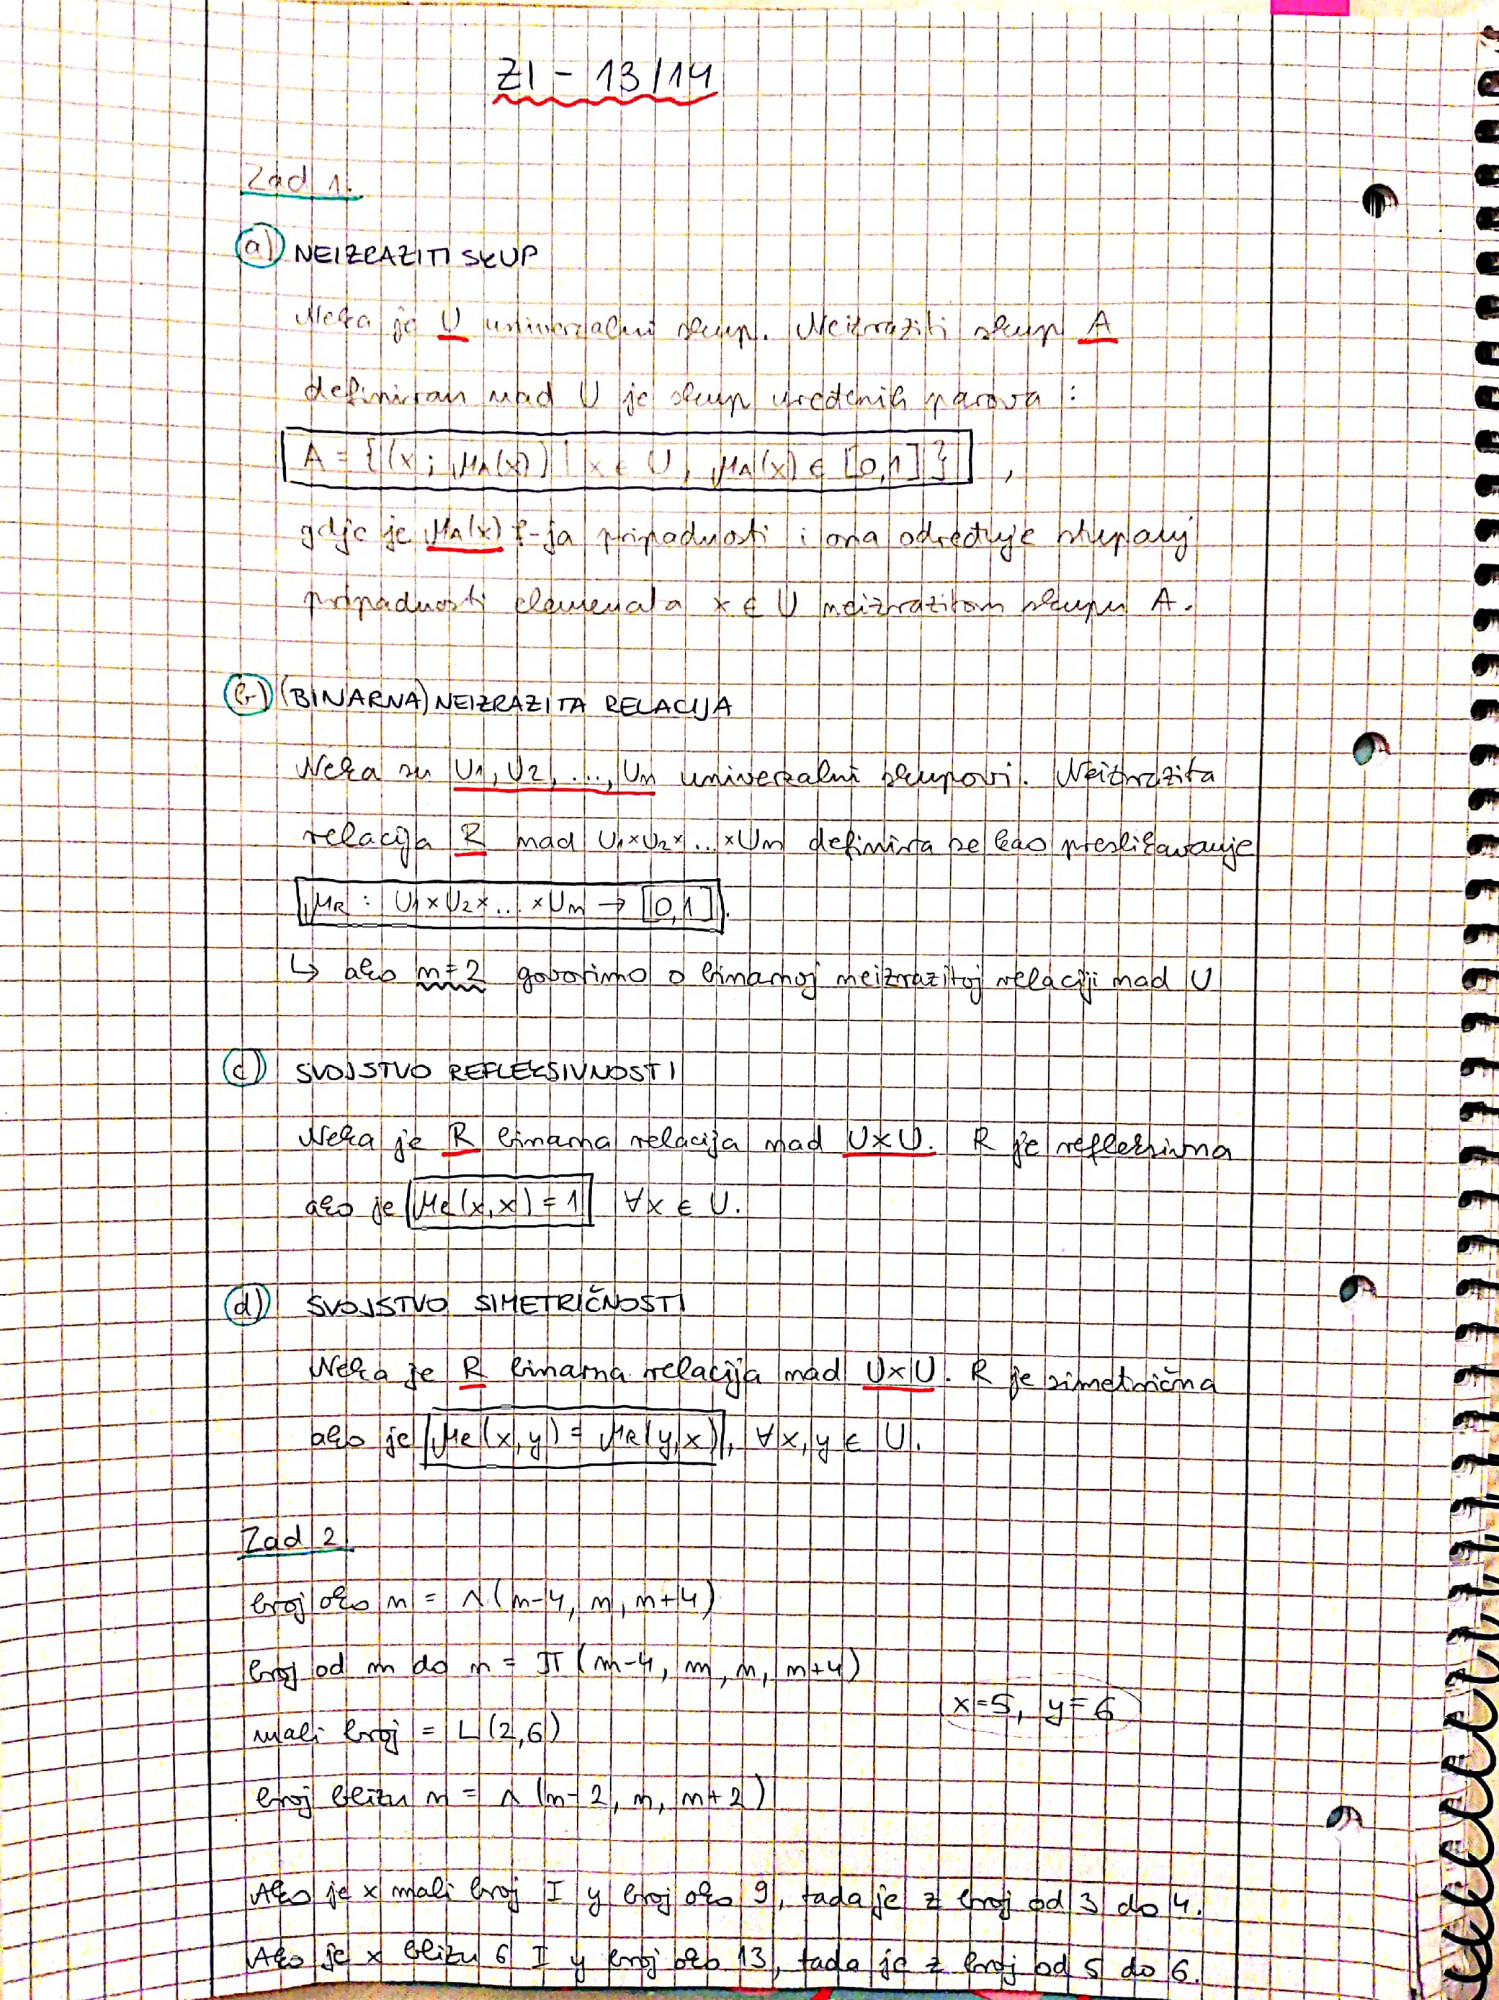 ZI - 13/14
Zad 1.
a) NEIZRAZITI SKUP
Neka je U univerzalni skup. Neizraziti skup A
definiran nad U je skup uređenih parova :
A = {(x ; μA(x)) | x ∈ U, μA(x) ∈ [0,1]} ,
gdje je μA(x) f-ja pripadnosti i ona određuje stupanj
pripadnosti elemenata x ∈ U neizrazitom skupu A.
b) (BINARNA) NEIZRAZITA RELACIJA
Neka su U1, U2, ..., Un univerzalni skupovi. Neizrazita
relacija R nad U1×U2×...×Un definira se kao preslikavanje
μR : U1×U2×...×Un → [0,1].
↳ ako n=2 govorimo o binarnoj neizrazitoj relaciji nad U
c) SVOJSTVO REFLEKSIVNOSTI
Neka je R binarna relacija nad U×U. R je refleksivna
ako je μR(x,x) = 1 ∀x ∈ U.
d) SVOJSTVO SIMETRIČNOSTI
Neka je R binarna relacija nad U×U. R je simetrična
ako je μR(x,y) = μR(y,x), ∀x,y ∈ U.
Zad 2.
broj oko n = Λ(n-4, n, n+4)
broj od m do n = π(m-4, m, n, n+4)
x=5, y=6
mali broj = L(2,6)
broj blizu n = Λ(n-2, n, n+2)
Ako je x mali broj I y broj oko 9, tada je z broj od 3 do 4.
Ako je x blizu 6 I y broj oko 13, tada je z broj od 5 do 6.